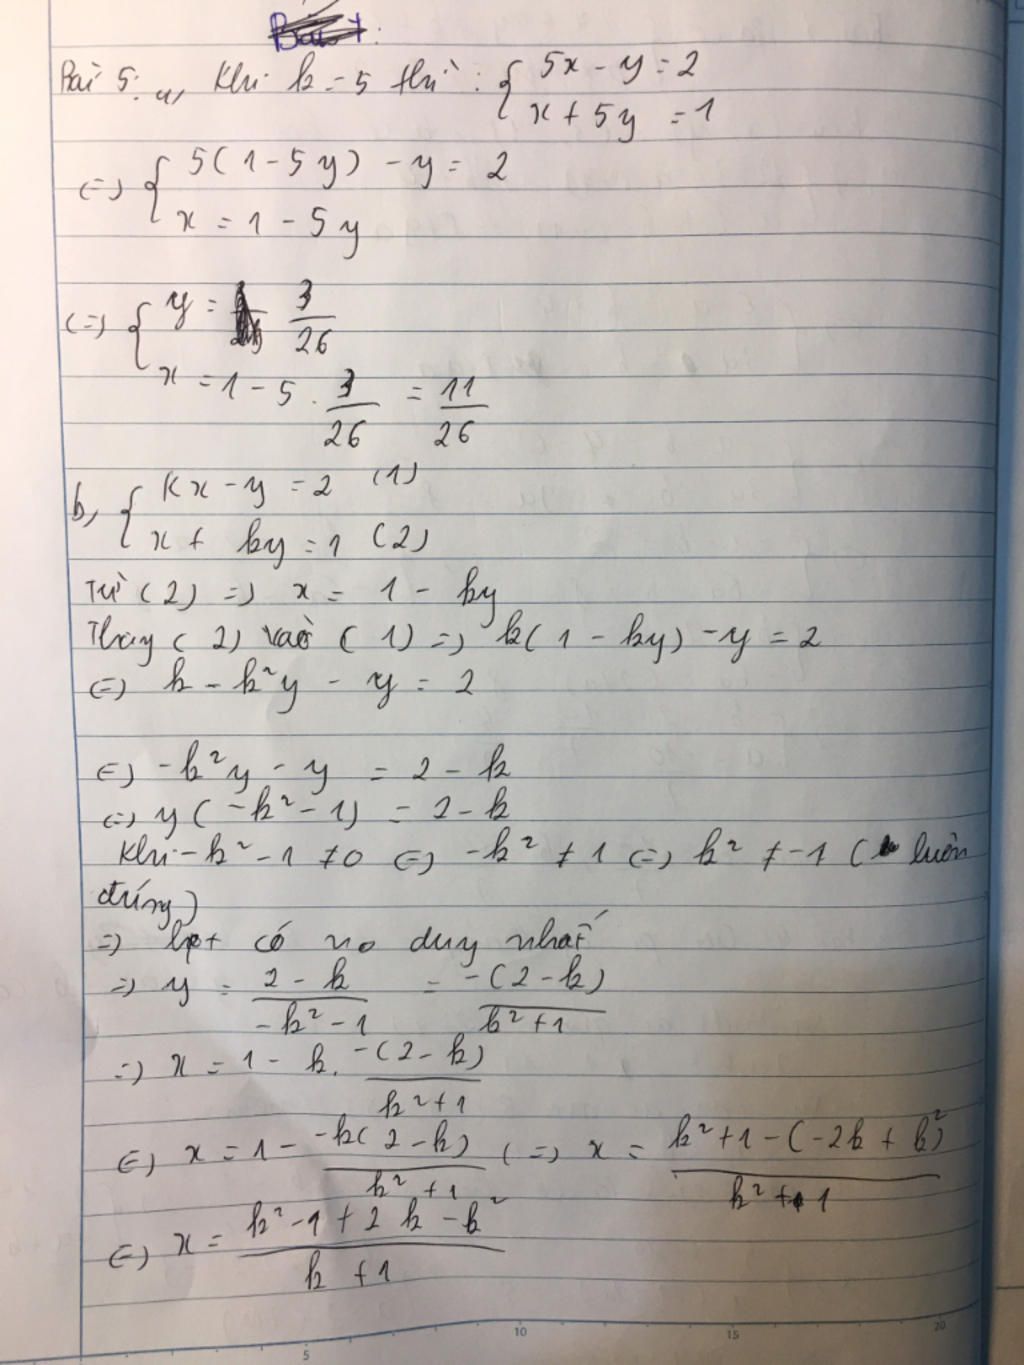 Bài 1:
Bài 5: a, Khi k = 5 thì: { 5x - y = 2
x + 5y = 1
(=) { 5(1 - 5y) - y = 2
x = 1 - 5y
(=) { y = 3/26
x = 1 - 5 . 3/26 = 11/26
b, { kx - y = 2 (1)
x + ky = 1 (2)
Từ (2) =) x = 1 - ky
Thay (2) vào (1) =) k(1 - ky) - y = 2
(=) k - k²y - y = 2
(=) -k²y - y = 2 - k
(=) y(-k² - 1) = 2 - k
Khi -k² - 1 ≠ 0 (=) -k² ≠ 1 (=) k² ≠ -1 (luôn
đúng)
=) hpt có no duy nhất
=) y = (2 - k)/(-k² - 1) = -(2 - k)/(k² + 1)
=) x = 1 - k. -(2 - k)/(k² + 1)
(=) x = 1 - -k(2 - k)/(k² + 1) (=) x = (k² + 1 - (-2k + k²)/(k² + 1)
(=) x = (k² - 1 + 2k - k²)/(k + 1)
5 10 15 20